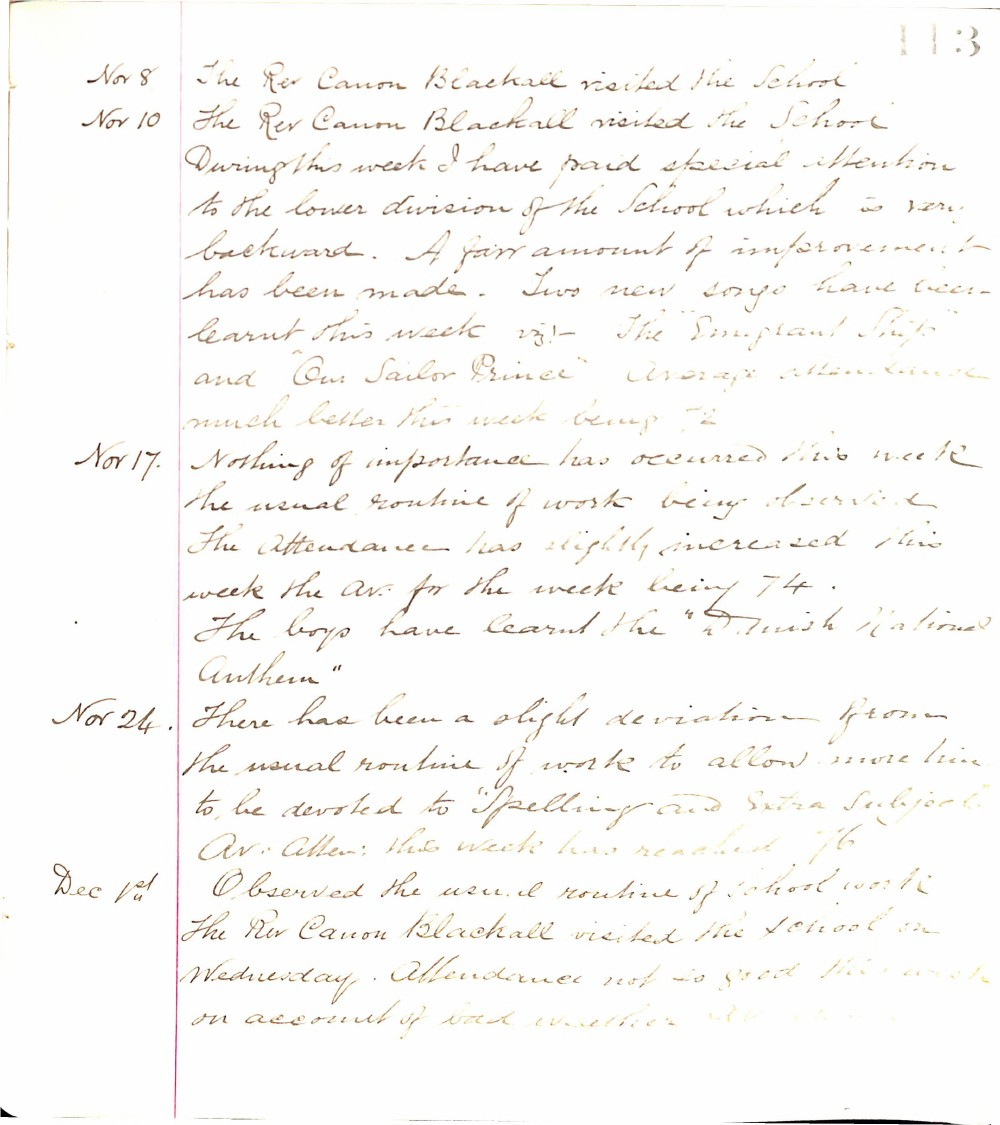 113
Nov 8 The Rev Canon Blackall visited the School
Nov 10 The Rev Canon Blackall visited the School
During this week I have paid special attention
to the lower division of the School which is very
backward. A fair amount of improvement
has been made. Two new songs have been
learnt this week viz:- The "Emigrant Ship"
and "Our Sailor Prince" Average attendance
much better this week being 72
Nov 17. Nothing of importance has occurred this week
the usual routine of work being observed
The Attendance has slightly increased this
week the Av: for the week being 74.
The boys have learnt the "Danish National
Anthem"
Nov 24. There has been a slight deviation from
the usual routine of work to allow more time
to be devoted to "Spelling and Extra Subjects.
Av: Atten: this week has reached 76
Dec 1st Observed the usual routine of School work
The Rev Canon Blackall visited the School on
Wednesday. Attendance not so good this week
on account of bad weather